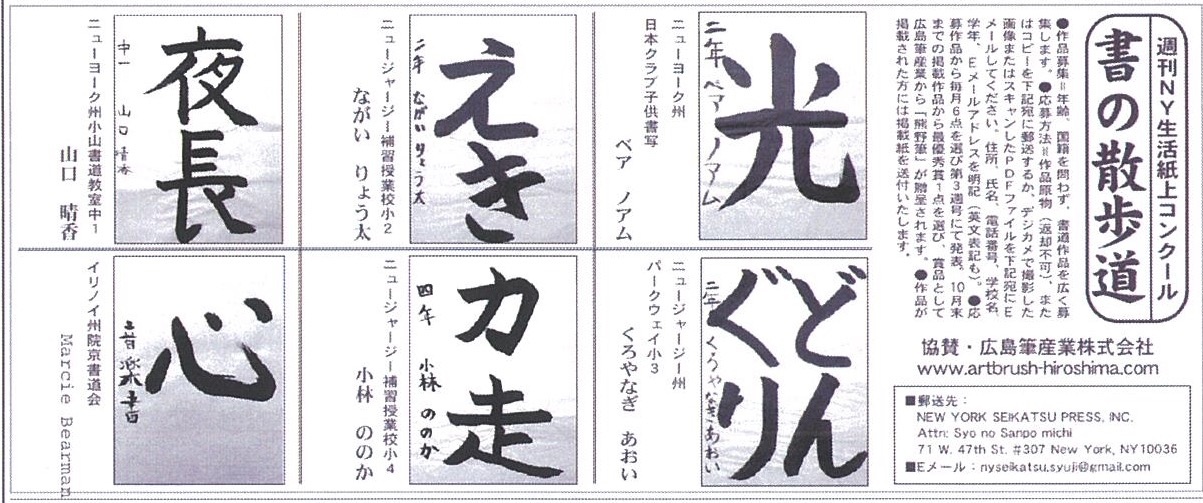 週刊NY生活紙上コンクール
書の散歩道
●作品募集=年齢、国籍を問わず、書道作品を広く募
集します。●応募方法=作品原物(返却不可)、また
はコピーを下記宛に郵送するか、デジカメで撮影した
画像またはスキャンしたPDFファイルを下記宛にE
メールしてください。住所、氏名、電話番号、学校名、
学年、Eメールアドレスを明記(英文表記も)。●応
募作品から毎月6点を選び第3週号にて発表。10月末
までの掲載作品から最優秀賞1点を選び、賞品として
広島筆産業から「熊野筆」が贈呈されます。●作品が
掲載された方には掲載紙を送付いたします。
協賛・広島筆産業株式会社
www.artbrush-hiroshima.com
■郵送先:
NEW YORK SEIKATSU PRESS, INC.
Attn: Syo no Sanpo michi
71 W. 47th St. #307 New York, NY10036
■Eメール:nyseikatsu.syuji@gmail.com
光
二年 ベアノアム
ニューヨーク州
日本クラブ子供書写
ベア ノアム
えき
二年 ながいりょう太
ニュージャージー補習授業校小2
ながい りょう太
夜長
中一 山口晴香
ニューヨーク州小山書道教室中1
山口 晴香
どんぐり
三年 くろやなぎあおい
ニュージャージー州
パークウェイ小3
くろやなぎ あおい
力走
四年 小林ののか
ニュージャージー補習授業校小4
小林 ののか
心
イリノイ州院京書道会
Marcie Bearman